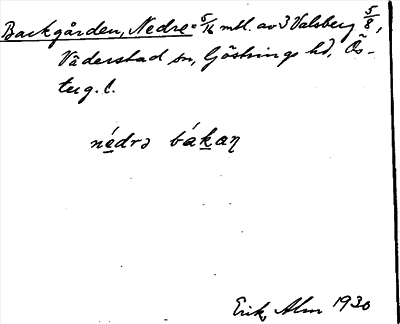 Backgården, Nedre = 5/16 mtl. av 3 Valsberg 5/8,
Väderstad sn, Göstrings hd, Ös-
terg. l.
nédrə bákaŋ
Erik Alm 1930